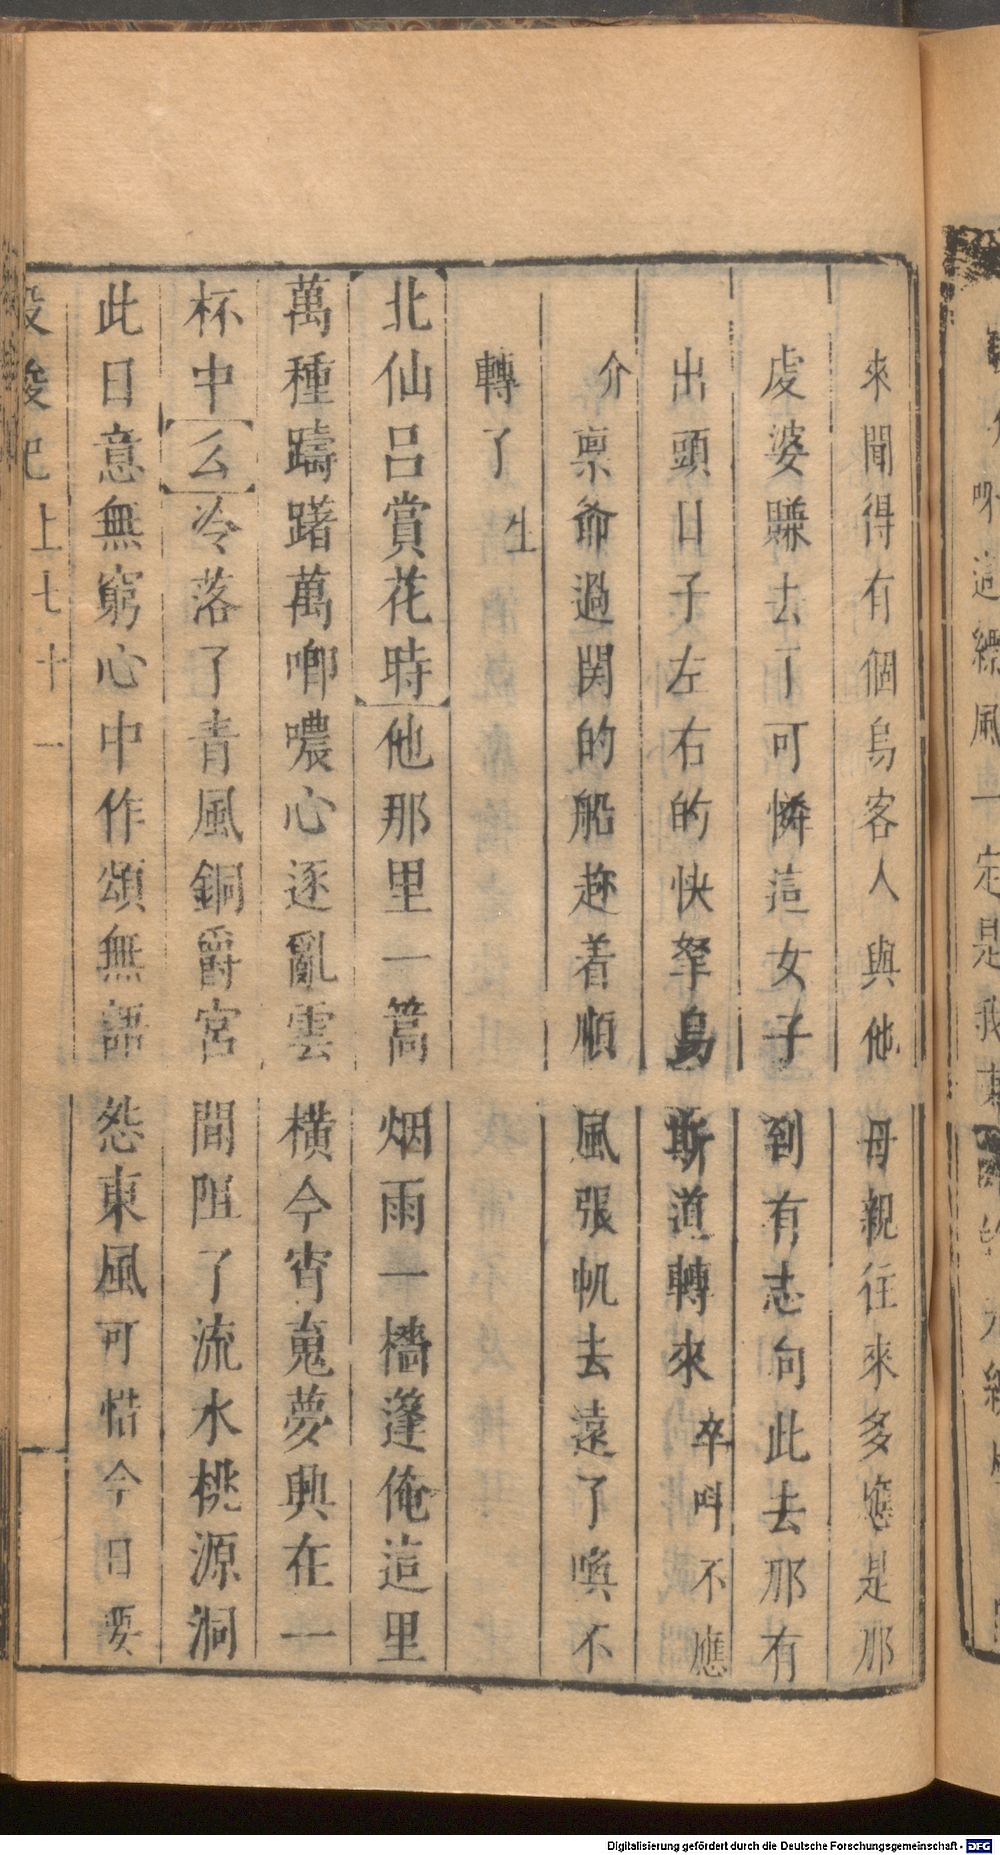 來聞得有個烏客人與他母親往來多應是那
虔婆賺去了可憐這女子到有志向此去那有
出頭日子左右的快拏烏斯道轉來卒叫不應
介稟爺過関的船趂着順風張帆去遠了喚不
轉了生
北仙吕賞花時他那里一篙烟雨一檣篷俺這里
萬種躊躇萬唧噥心逐亂雲橫今宵蒐夢興在一
杯中么冷落了青風銅爵宮間阻了流水桃源洞
此日意無窮心中作頌無語怨東風可惜今日要
投梭記上七十一
Digitalisierung gefördert durch die Deutsche Forschungsgemeinschaft - DFG